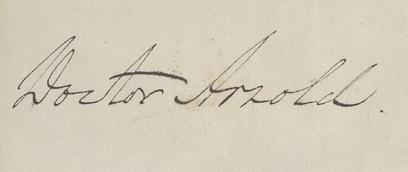 Doctor Arnold.